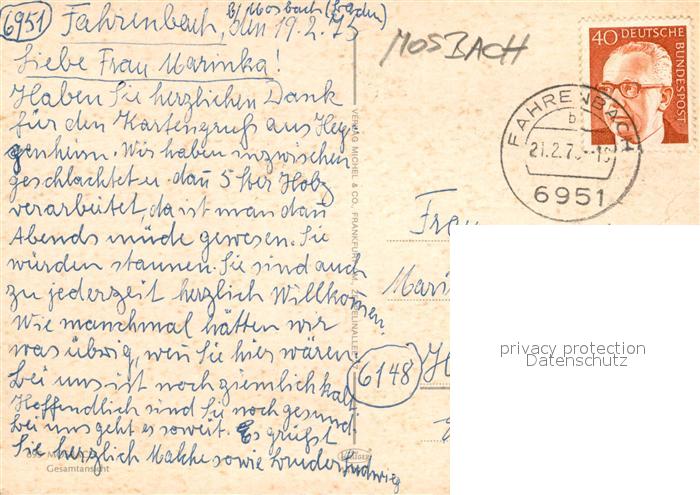 6951 Fahrenbach, den 19.2.75
b/ Mosbach (Baden)
Liebe Frau Marinka!
Haben Sie herzlichen Dank
für den Kartengruß aus Hep
penheim. Wir haben inzwischen
geschlachtet u. dan 5 Ster Holz
verarbeitet, da ist man dan
Abends müde gewesen. Sie
würden staunen. Sie sind auch
zu jederzeit herzlich Willkommen.
Wie manchmal hätten wir
was übrig, wen Sie hier wären.
Bei uns ist noch ziemlich kalt.
Hoffendlich sind Sie noch gesund.
Bei uns geht es soweit. Es grüßt
Sie herzlich Malche sowie Bruder Ludwig
Gesamtansicht
VERLAG MICHEL & CO., FRANKFURT A. M.,
KRÜGER
MOSBACH
40 DEUTSCHE
BUNDESPOST
FAHRENBACH
b
21.2.75
6951
Frau
Marin
6148
privacy protection
Datenschutz